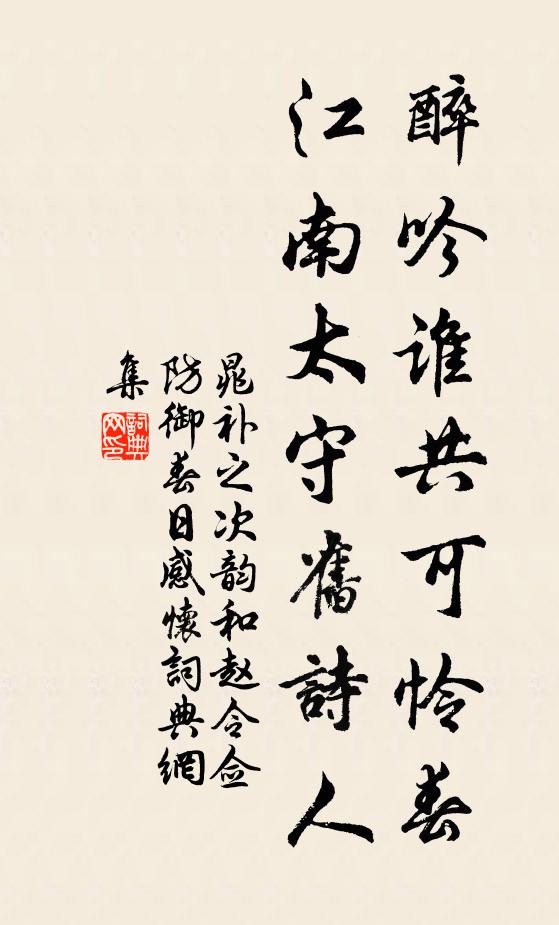 醉吟谁共可怜春
江南太守舊詩人
晁补之次韵和赵令佥
防御春日感懷詞典網
集
詞典
网印